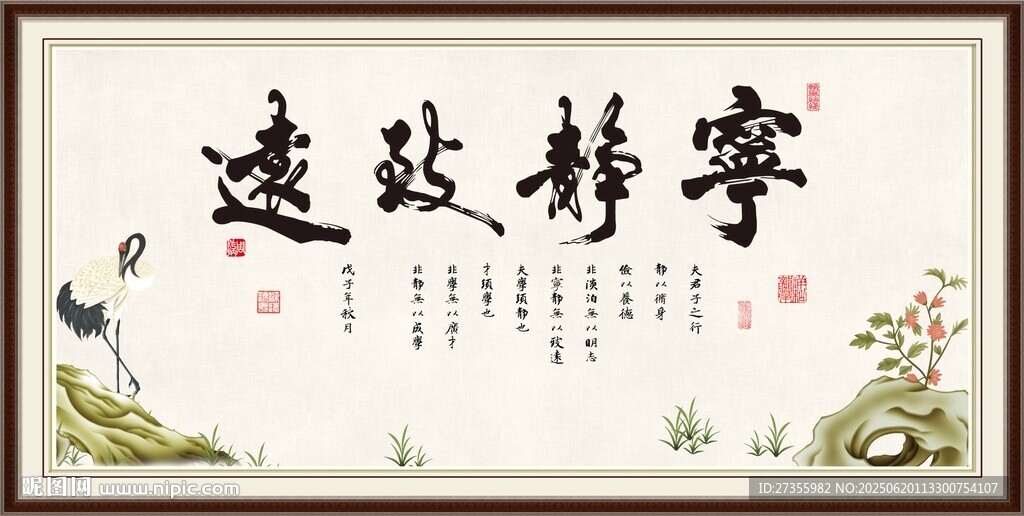 寧靜致遠
夫君子之行
靜以脩身
儉以養德
非淡泊無以明志
非寧靜無以致遠
夫學須靜也
才須學也
非學無以廣才
非靜無以成學
戊子年秋月
昵图网 www.nipic.com
ID:27355982 NO:20250620113300754107